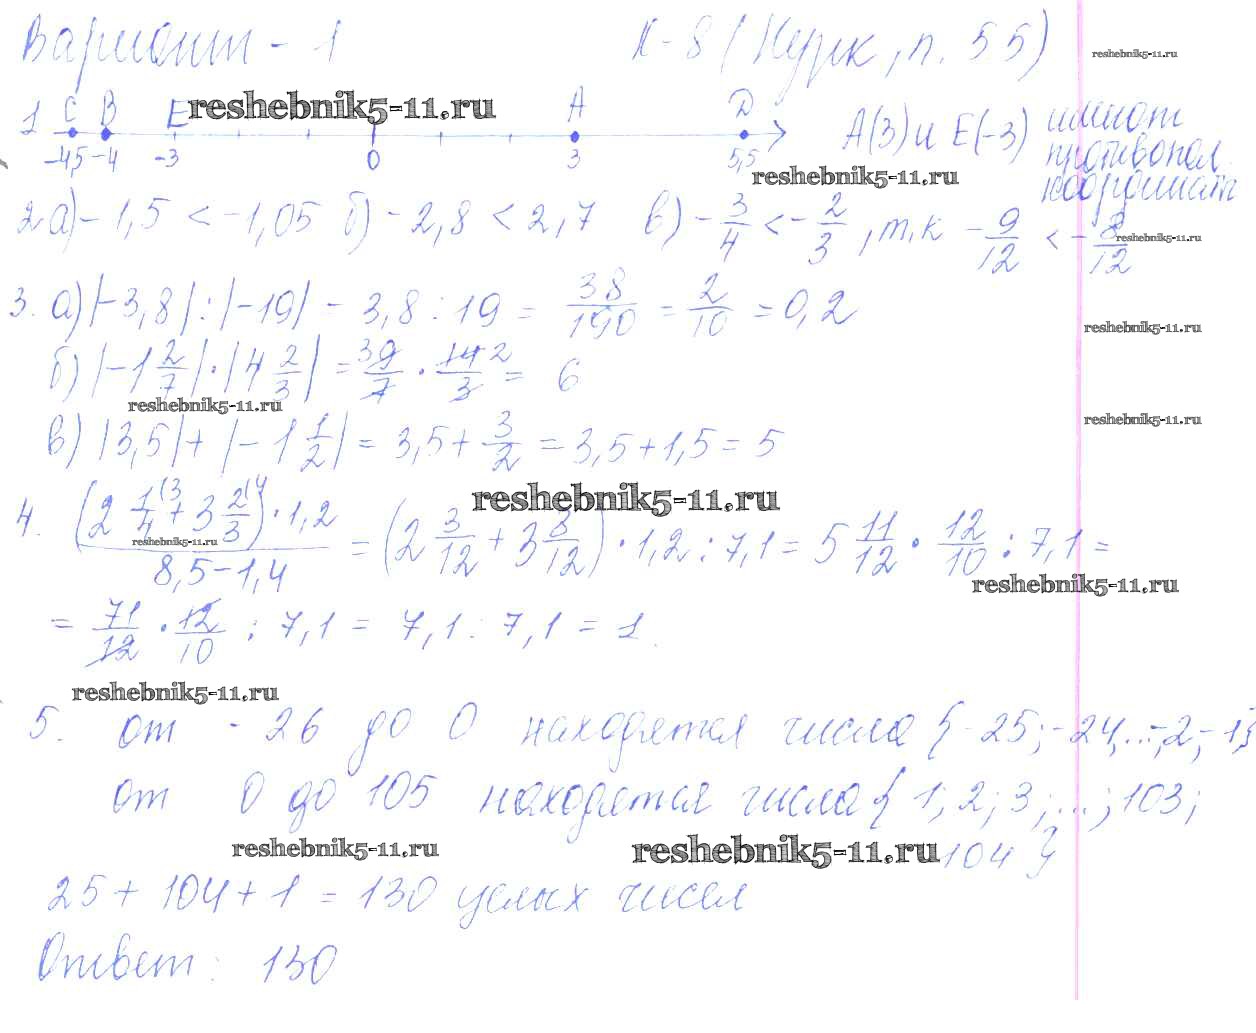 Вариант - 1 К-8 (Нурк, п. 55) reshebnik5-11.ru
1 C B E reshebnik5-11.ru A D A(3) и E(-3) имеют
-4,5 -4 -3 0 3 5,5 противопол.
reshebnik5-11.ru координат
2 а) -1,5 < -1,05 б) -2,8 < 2,7 в) -3/4 < -2/3, т.к -9/12 < -8/12
reshebnik5-11.ru
3. а) |-3,8| : |-19| = 3,8 : 19 = 38/190 = 2/10 = 0,2
reshebnik5-11.ru
б) |-1 2/7| · |4 2/3| = 9/7 · 14/3 = 6
3 2
reshebnik5-11.ru
в) |3,5| + |-1 1/2| = 3,5 + 3/2 = 3,5 + 1,5 = 5
reshebnik5-11.ru
reshebnik5-11.ru
4. (2 1/4 (3 + 3 2/3 (4) · 1,2 / 8,5 - 1,4 = (2 3/12 + 3 8/12) · 1,2 : 7,1 = 5 11/12 · 12/10 : 7,1 =
reshebnik5-11.ru
reshebnik5-11.ru
= 71/12 · 12/10 : 7,1 = 7,1 : 7,1 = 1.
reshebnik5-11.ru
5. от -26 до 0 находятся числа {-25; -24; ...; -2; -1}
от 0 до 105 находятся числа {1; 2; 3; ...; 103;
reshebnik5-11.ru reshebnik5-11.ru 104}
25 + 104 + 1 = 130 целых чисел
Ответ: 130